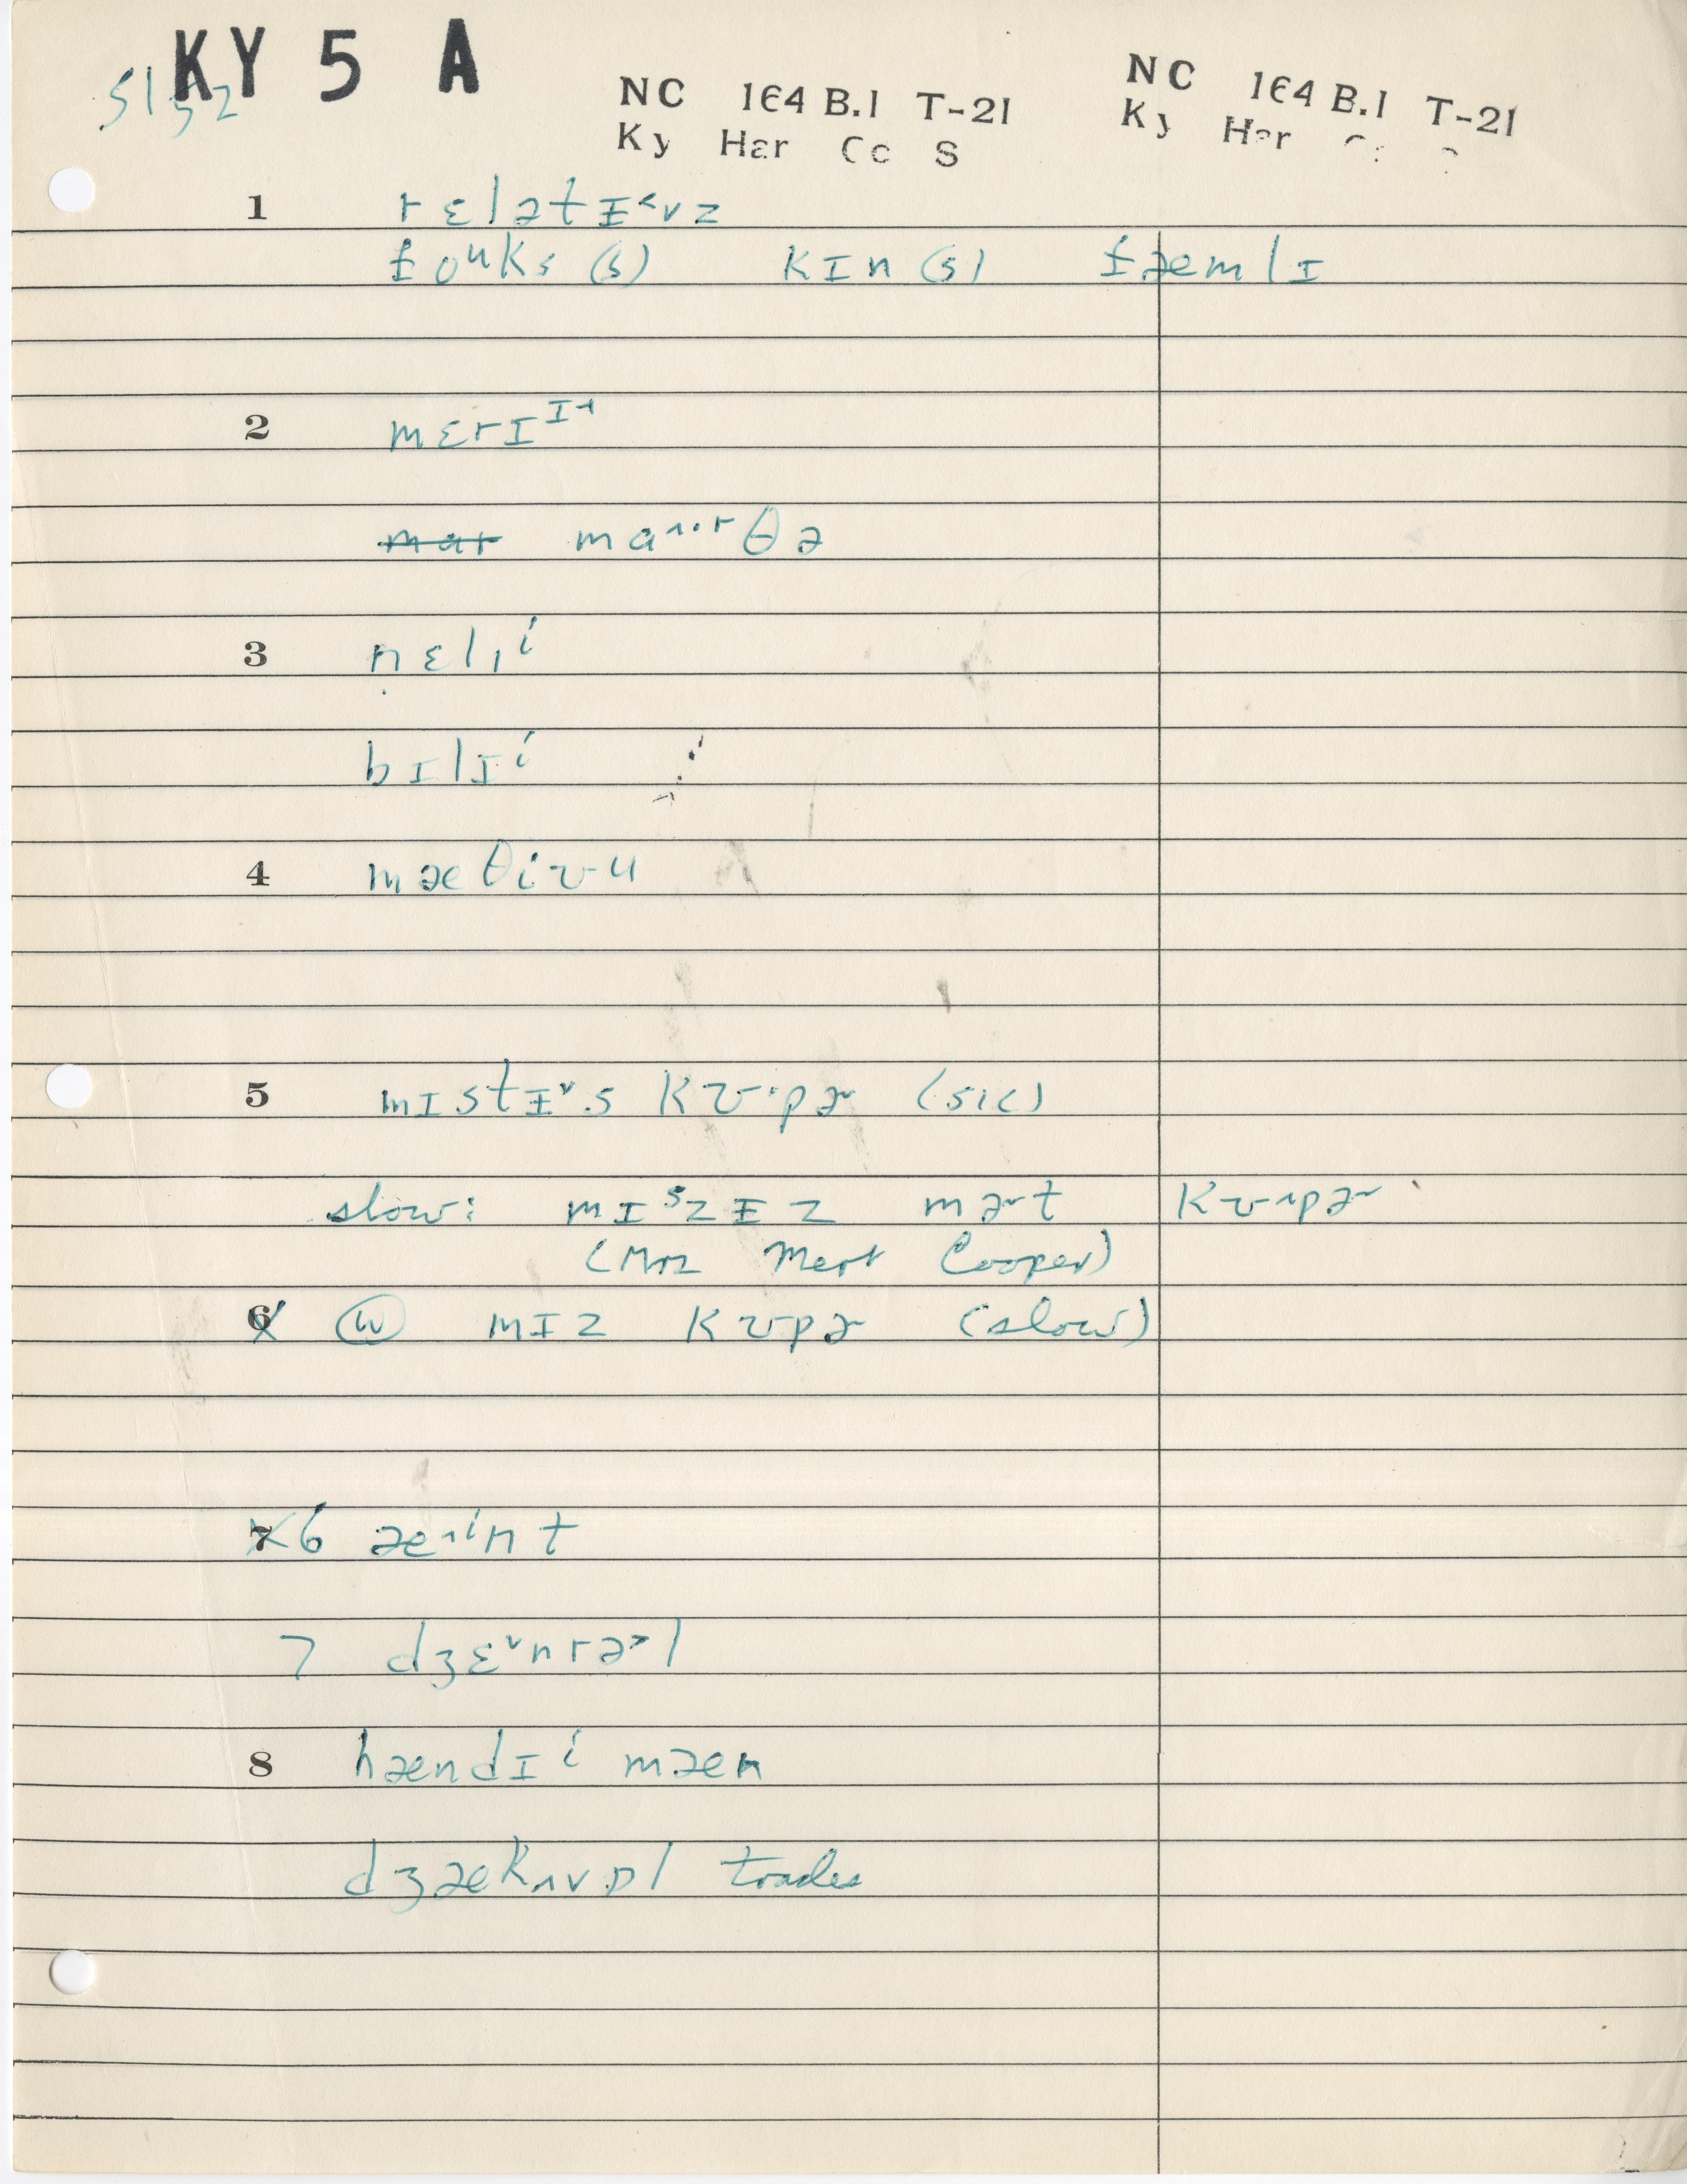 KY 5 A
5152
NC 164 B.1 T-21 NC 164 B.1 T-21
Ky Har Co S Ky Har
1 rɛlətɨ˂vz
foᵘks (s) kɪn (s) fæmlɪ
2 mɛrɪᴵ˧
mar maʌ·ʳθə
3 nɛlɪⁱ
bɪlɪⁱ
4 mæθiʊ-u
5 mɪstɨ˅s kʊ·pɚ (sic)
slow: mɪˢzɨz mɚt kʊ˄pɚ
(Mrs Mert Cooper)
6 ⓦ mɪz kʊpɚ (slow)
7 6 æ˄ⁱnt
7 dʒɛ˅nrə˃l
8 hændɪⁱ mæn
dʒækʌvɒl trades